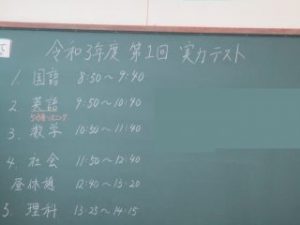 令和3年度 第1回 実力テスト
1. 国語 8:50～9:40
2. 英語 9:50～10:40
3. 数学 10:50～11:40
4. 社会 11:50～12:40
昼休憩 12:40～13:20
5. 理科 13:25～14:15